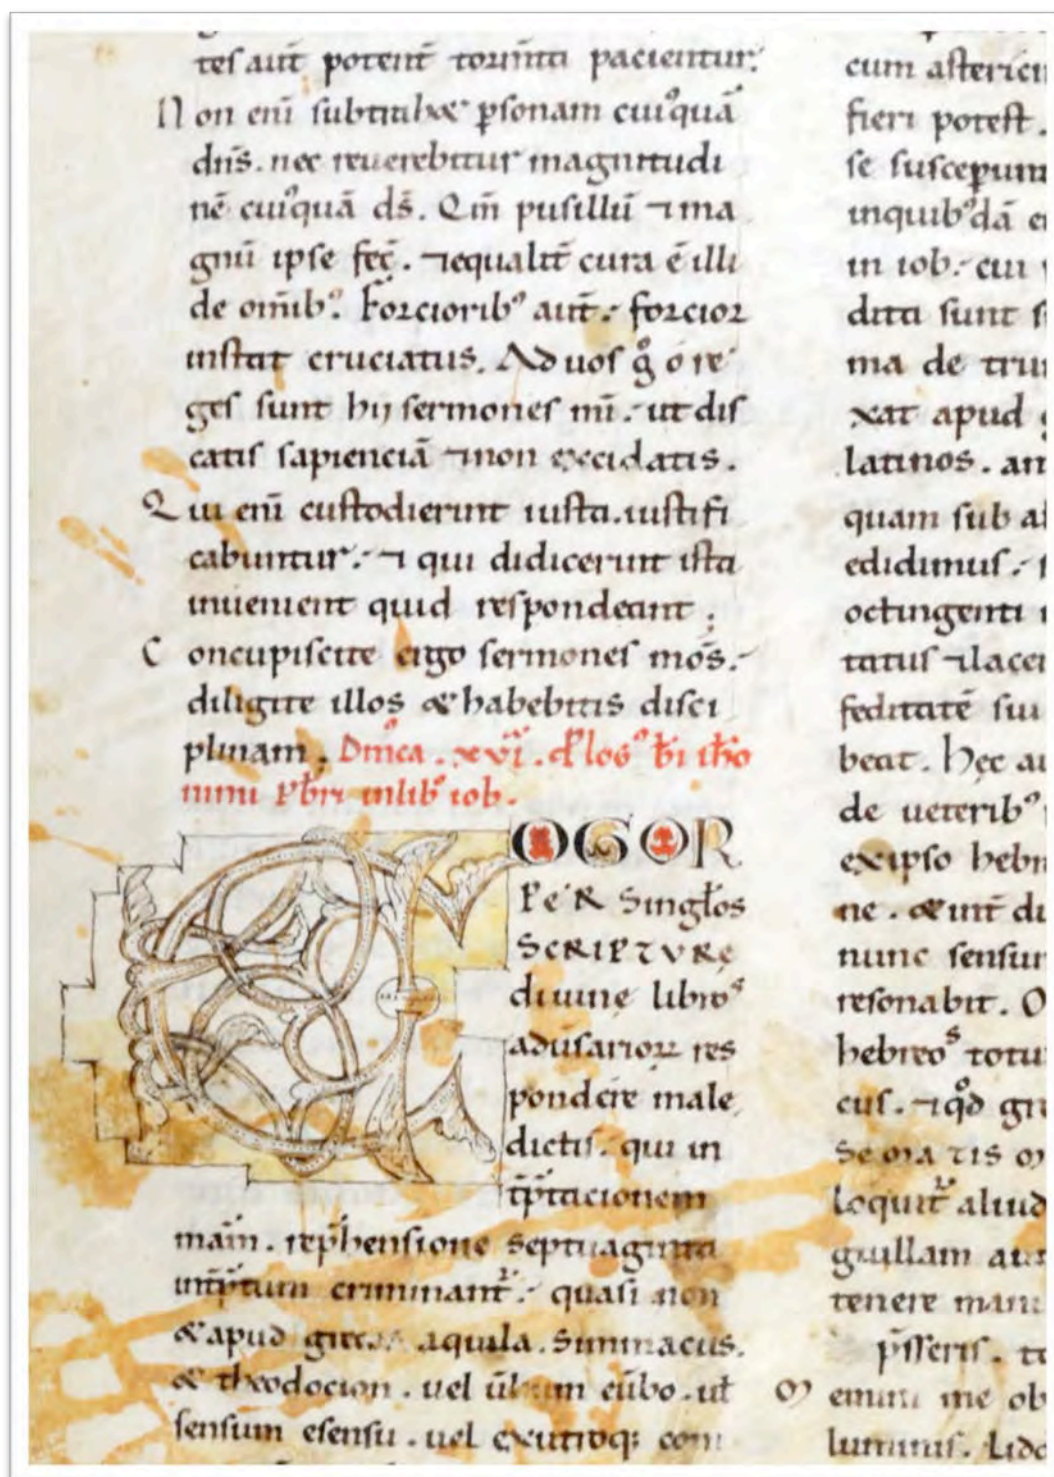 tes aut̄ potent̄ torm̄ta pacientur.
Non eni subtrahet p̱sonam cuiꝰquā
dn̄s. nec reuerebitur magnitudi
nē cuiꝰquā ds̄. Qm̄ pusillū ⁊ ma
gnū ipse fec̄. ⁊equalit̄ cura ē illi
de om̄ibꝰ. Forcioribꝰ aut̄: forcior
instat cruciatus. Ad uos g̊ o re
ges sunt hij sermones mī: ut dis
catis sapienciā ⁊ non excidatis.
Qui enī custodierint iusta. iustifi
cabuntur: ⁊ qui didicerint ista
inuenient quid respondeant;
Concupiscite ergo sermones mōs:
diligite illos & habebitis disci
plinam. Dm̄ca. xvi. ꝓlogꝰ bī iħo
nimi p̄bri in libꝰ iob.
COGOR
PER Singl̄os
SCRIPTVRę
diuine libroˢ
aduſarioꝝ res
pondere male
dictis. qui in
t̄p̄tacionem
mām. rep̄hensione septuaginta
int̄p̄tum criminant᷑: quasi non
& apud grecos aquila. Summacus.
& theodocion. uel ūbum eūbo. ut̄
sensum esensu. uel exutroq; com
cum asterici
fieri potest.
se susceperun
inquibꝰdā e
in iob: cui
diti sunt s
ma de tru
xat apud g
latinos. an
quam sub a
edidimus:
octingenti
tatus ⁊lacer
feditatē sui
beat. Hęc au
de ueteribꝰ
exipso hebr
ne. & int̄ du
nunc sensum
resonabit. O
hebreoˢ totu
cus. ⁊q̊d gr
Se ma tis m
loquit᷑ aliud
guillam au
tenere manu
p̄sseris. t
Memini me ob
luminis. Lido